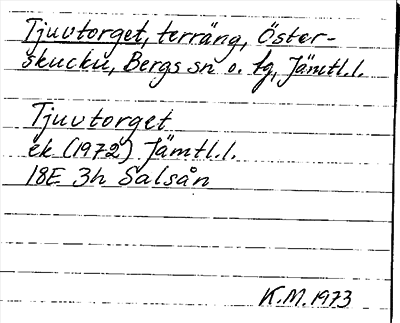 Tjuvtorget, terräng, Öster-
skucku, Bergs sn o. tg, Jämtl.l.
Tjuvtorget
ek (1972) Jämtl.l.
18E 3h Salsån
K.M. 1973